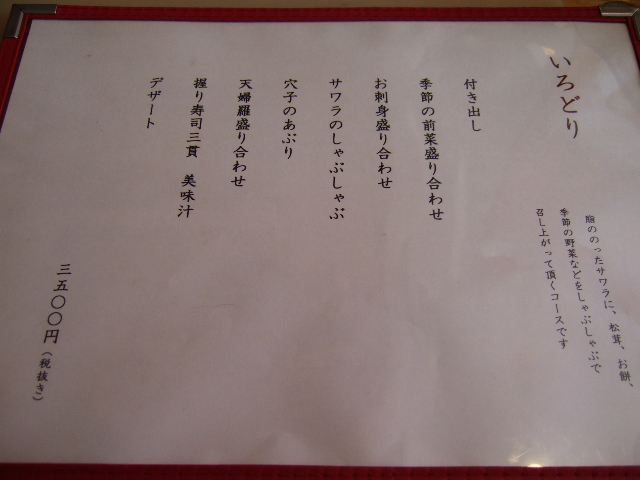 いろどり
脂ののったサワラに、松茸、お餅、
季節の野菜などをしゃぶしゃぶで
召し上がって頂くコースです
付き出し
季節の前菜盛り合わせ
お刺身盛り合わせ
サワラのしゃぶしゃぶ
穴子のあぶり
天婦羅盛り合わせ
握り寿司三貫　美味汁
デザート
三五〇〇円（税抜き）